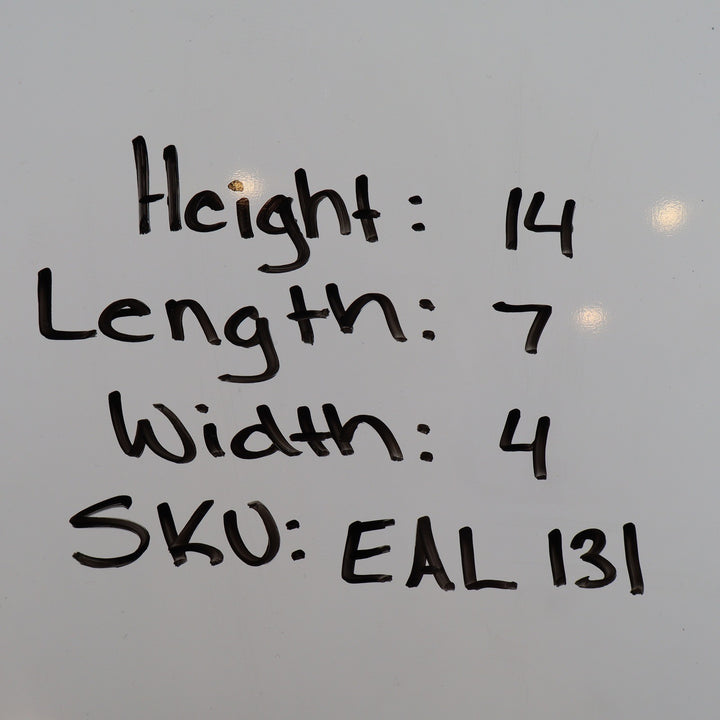 Height: 14
Length: 7
Width: 4
SKU: EAL 131